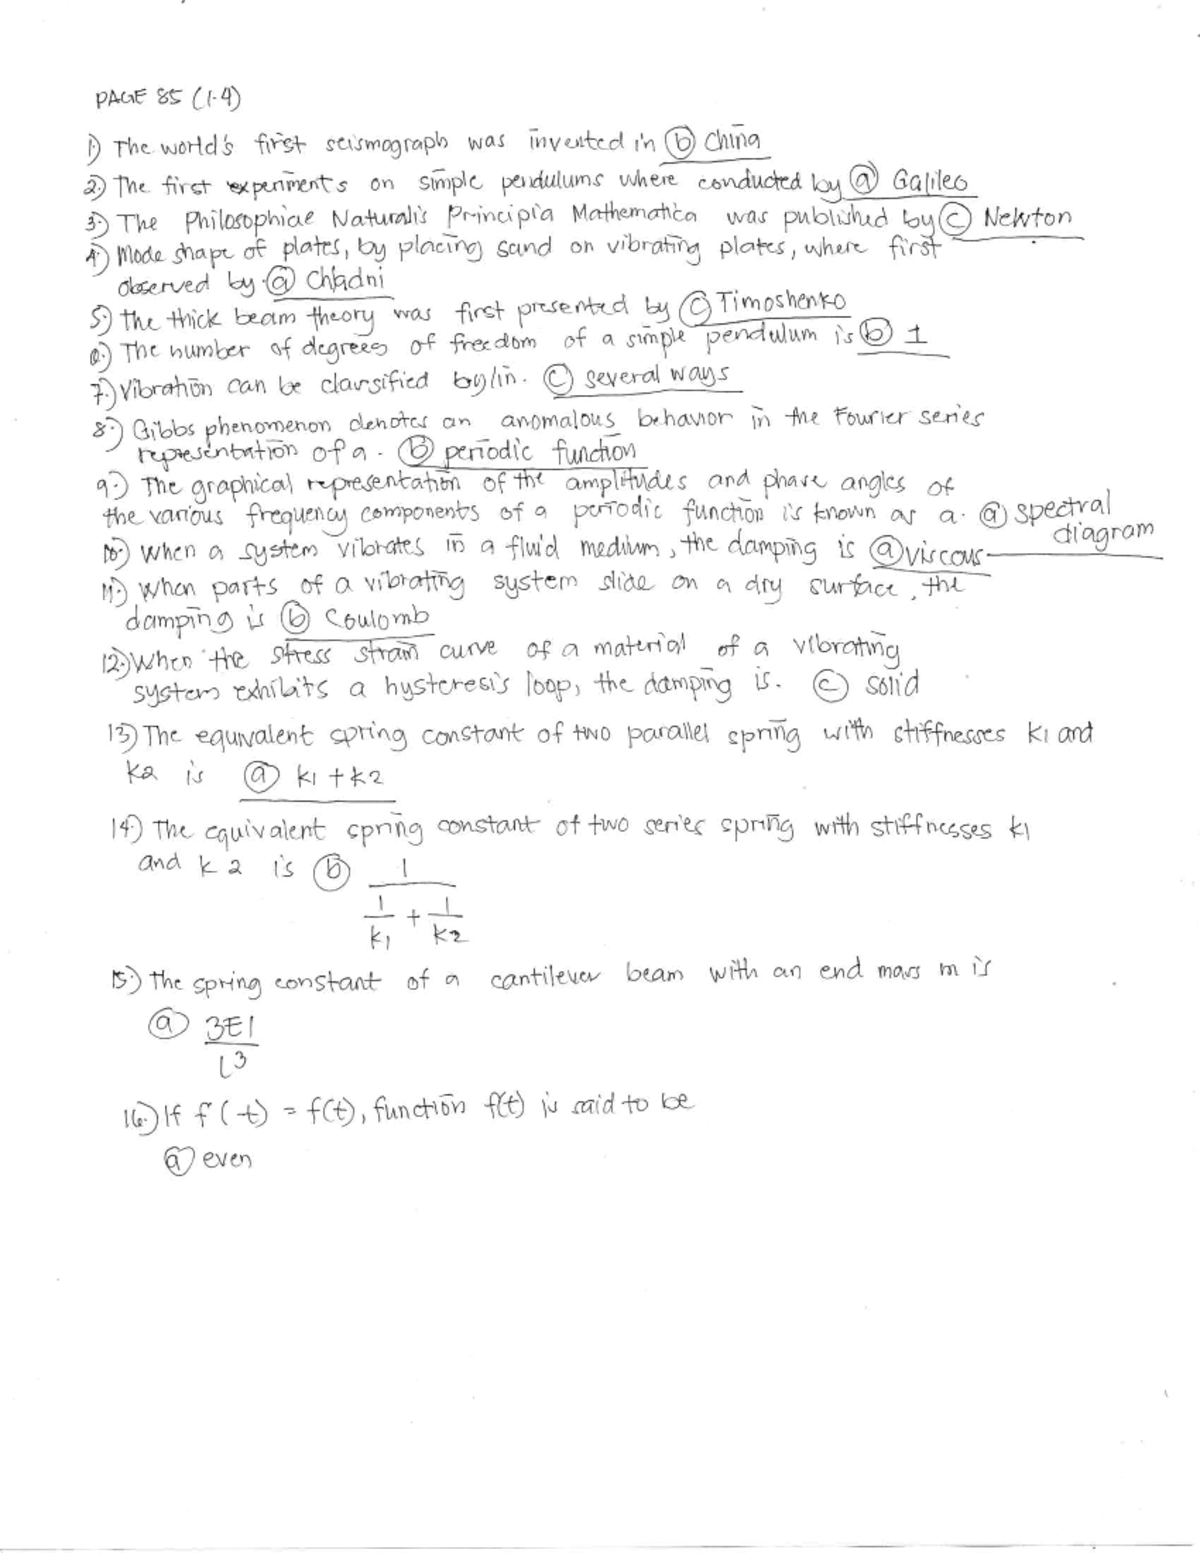 PAGE 85 (1-4)
1) The world's first seismograph was invented in (b) China
2) The first experiments on simple pendulums where conducted by (a) Galileo
3) The Philosophiae Naturalis Principia Mathematica was published by (c) Newton
4) Mode shape of plates, by placing sand on vibrating plates, where first
observed by (a) Chladni
5) The thick beam theory was first presented by (c) Timoshenko
6.) The number of degrees of freedom of a simple pendulum is (b) 1
7.) Vibration can be classified by/in. (c) several ways
8.) Gibbs phenomenon denotes an anomalous behavior in the Fourier series
representation of a. (b) periodic function
9.) The graphical representation of the amplitudes and phase angles of
the various frequency components of a periodic function is known as a. (a) spectral
diagram
10.) When a system vibrates in a fluid medium, the damping is (a) viscous
11.) When parts of a vibrating system slide on a dry surface, the
damping is (b) Coulomb
12.) When the stress strain curve of a material of a vibrating
system exhibits a hysteresis loop, the damping is. (c) solid
13) The equivalent spring constant of two parallel spring with stiffnesses k1 and
k2 is (a) k1 + k2
14.) The equivalent spring constant of two series spring with stiffnesses k1
and k2 is (b) 1
1 + 1
k1 k2
15.) The spring constant of a cantilever beam with an end mass m is
(a) 3EI
l3
16.) If f(-t) = f(t), function f(t) is said to be
(a) even